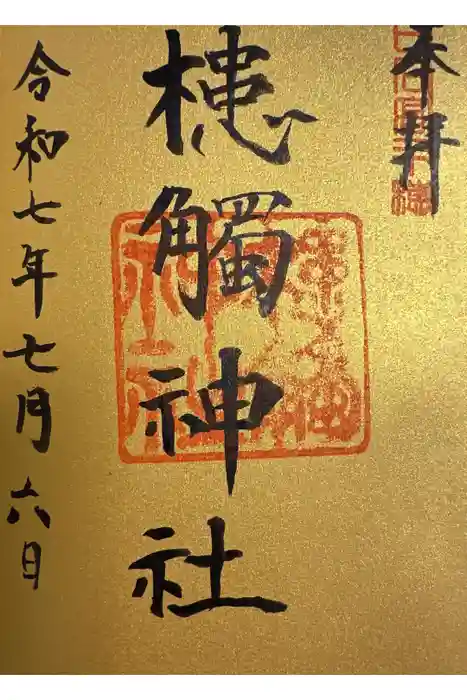 奉拝
槵觸神社
令和七年七月六日